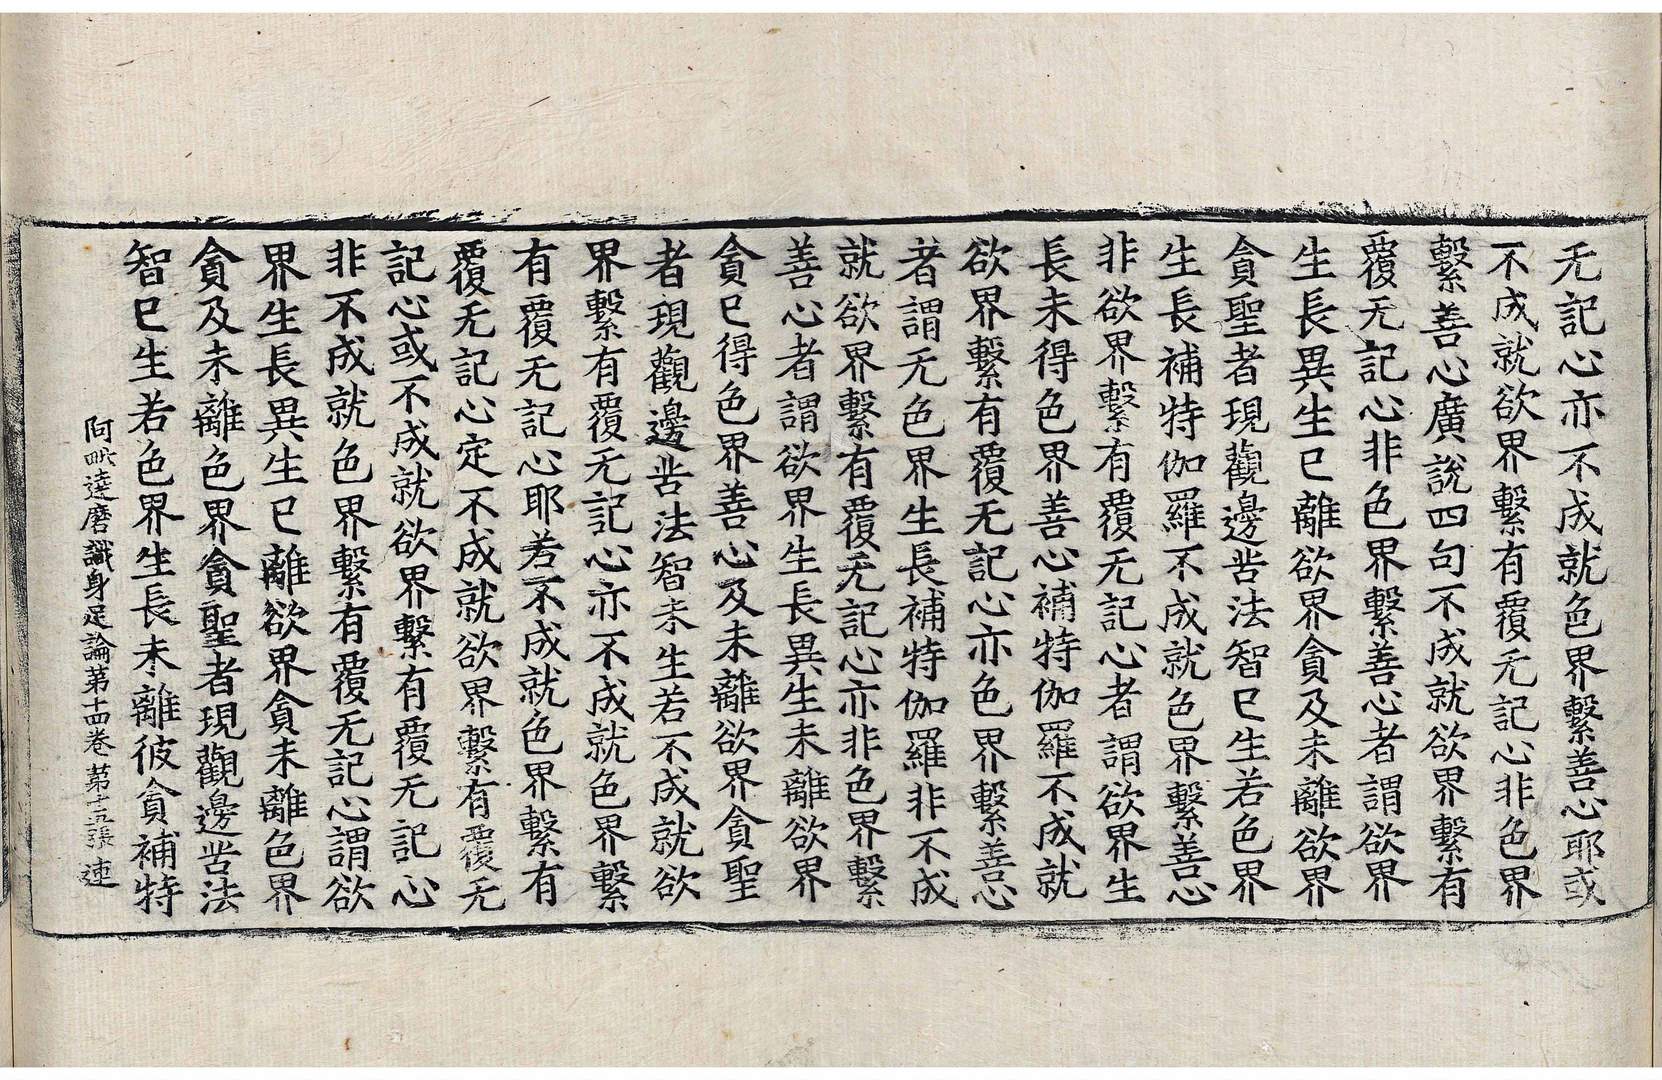 无記心亦不成就色界繫善心耶或
不成就欲界繫有覆无記心非色界
繫善心廣說四句不成就欲界繫有
覆无記心非色界繫善心者謂欲界
生長異生已離欲界貪及未離欲界
貪聖者現觀邊苦法智已生若色界
生長補特伽羅不成就色界繫善心
非欲界繫有覆无記心者謂欲界生
長未得色界善心補特伽羅不成就
欲界繫有覆无記心亦色界繫善心
者謂无色界生長補特伽羅非不成
就欲界繫有覆无記心亦非色界繫
善心者謂欲界生長異生未離欲界
貪已得色界善心及未離欲界貪聖
者現觀邊苦法智未生若不成就欲
界繫有覆无記心亦不成就色界繫
有覆无記心耶若不成就色界繫有
覆无記心定不成就欲界繫有覆无
記心或不成就欲界繫有覆无記心
非不成就色界繫有覆无記心謂欲
界生長異生已離欲界貪未離色界
貪及未離色界貪聖者現觀邊苦法
智已生若色界生長未離彼貪補特
阿毗達磨識身足論第十四卷 第十五張 連